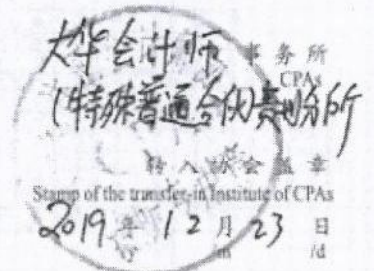 大华会计师 事务所
CPAs
(特殊普通合伙)贵州分所
转入协会盖章
Stamp of the transfer-in Institute of CPAs
2019 年 12 月 23 日
/y /m /d